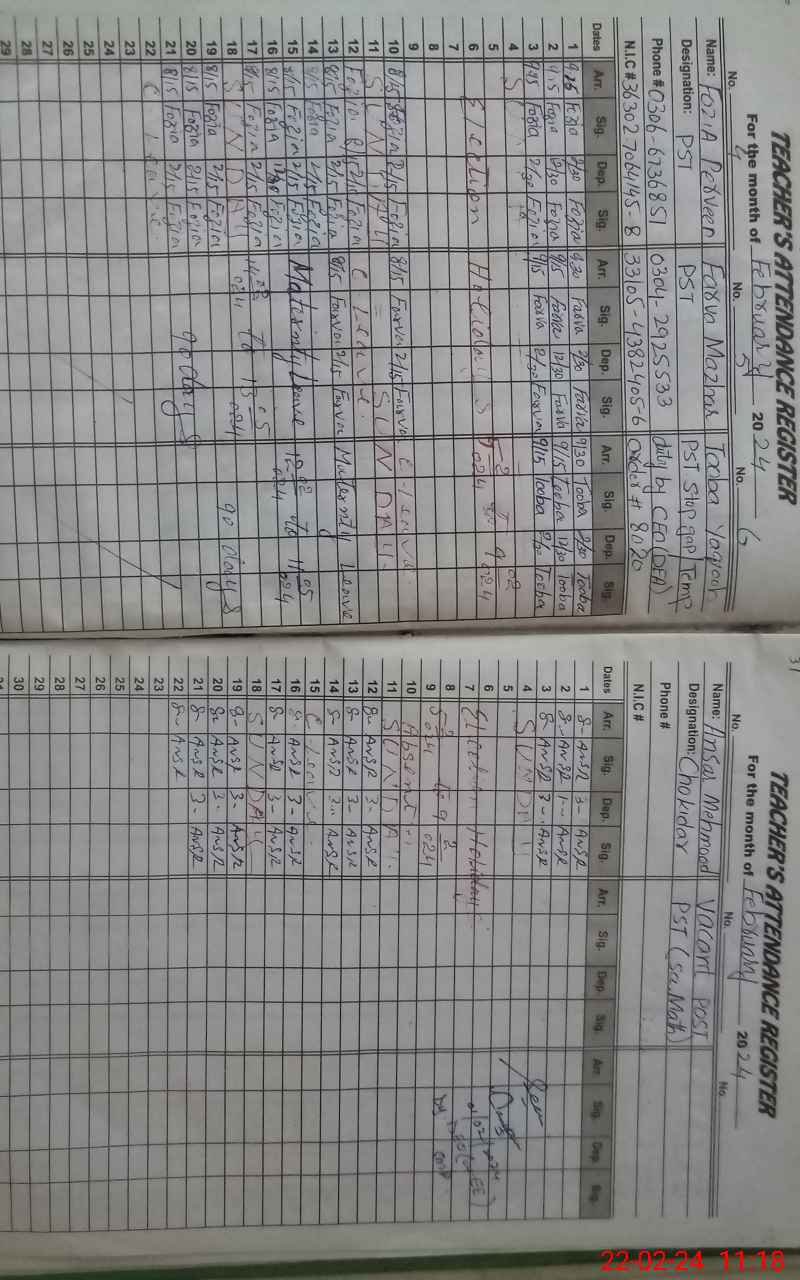 TEACHER'S ATTENDANCE REGISTER
For the month of February 2024
No. 4 No. 5 No. 6
Name: Fozia Perveen Farva Mazhar Tooba Yaqoob
Designation: PST PST PST Stop gap Temp
Phone # 0306-6736851 0304-2925533 duty by CEO (DEA)
N.I.C # 0304-2925533 33105-4382405-6 order # 8020
Dates Arr. Sig. Dep. Sig. Arr. Sig. Dep. Sig. Arr. Sig. Dep. Sig.
1 9:25 Fozia 2/30 Fozia 9:30 Farva 2/30 Farva 9/30 Tooba 2/30 Tooba
2 9:15 Fozia 12/30 Fozia 9/15 Farva 12/30 Farva 9/15 Tooba 12/30 Tooba
3 9:15 Fozia 2/30 Fozia 9/15 Farva 2/30 Farva 9/15 Tooba 2/30 Tooba
4 S
5
6 Election Holidays
7
8
9
10 8/15 Fozia 2/15 Fozia 8/15 Farva 2/15 Farva C-Leave
11 SUNDAY SUNDAY
12 Fozia 8/15 2/15 Fozia C Leave
13 8/15 Fozia 2/15 Fozia 8/15 Farva 2/15 Farva Maternty Leave
14 8/15 Fozia 2/15 Fozia
15 8/15 Fozia 2/15 Fozia Maternty Leave
16 8/15 Fozia 12/30 Fozia
17 8/15 Fozia 2/15 Fozia 14-02 024 To 13-05 024
18 SUNDAY 90 days
19 8/15 Fozia 2/15 Fozia
20 8/15 Fozia 2/15 Fozia 90 days
21 8/15 Fozia 2/15 Fozia
22 C Leave
23
24
25
26
27
28
29
TEACHER'S ATTENDANCE REGISTER
For the month of February 2024
No. No. No.
Name: Ansar Mehmood Vacant Post
Designation: Chokidar PST (Sci Math)
Phone #
N.I.C #
Dates Arr. Sig. Dep. Sig. Arr. Sig. Dep. Sig. Arr. Sig. Dep. Sig.
1 8- AnSR 3- AnSR
2 8- AnSR 1- AnSR
3 8- AnSR 3- AnSR
4 SUNDAY
5
6 Election Holiday
7
8
9
10 Absent
11 SUNDAY
12 8- AnSR 3- AnSR
13 8- AnSR 3- AnSR
14 8- AnSR 3- AnSR
15 C Leave
16 8- AnSR 3- AnSR
17 8- AnSR 3- AnSR
18 SUNDAY
19 8- AnSR 3- AnSR
20 8- AnSR 3- AnSR
21 8- AnSR 3- AnSR
22 8- AnSR
23
24
25
26
27
28
29
30
22-02-24 11:18